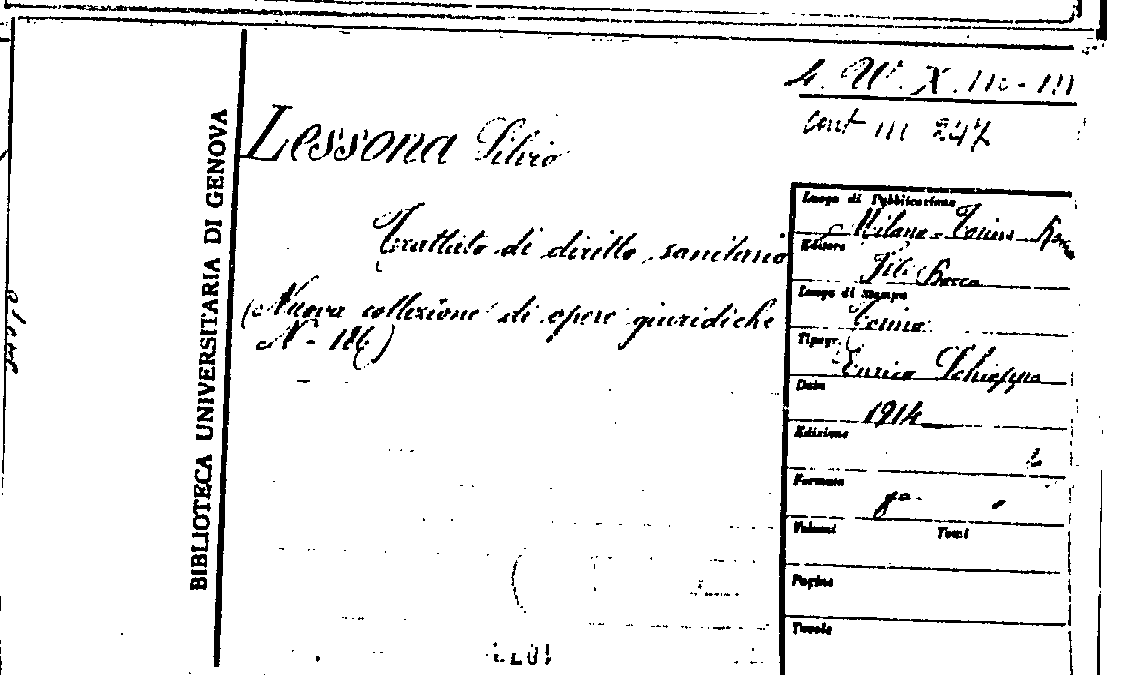 4. W. X. III - III
cont III 247
BIBLIOTECA UNIVERSITARIA DI GENOVA
Lessona Silvio
Trattato di diritto sanitario
(Nuova collezione di opere giuridiche
N - 186)
Luogo di Pubblicazione
Milano - Torino - Roma
Editore
F.lli Bocca
Luogo di Stampa
Torino
Tipogr.
Enrico Schioppo
Data
1914
Edizione
Formato
8º
Volumi Tomi
Pagine
Tavole